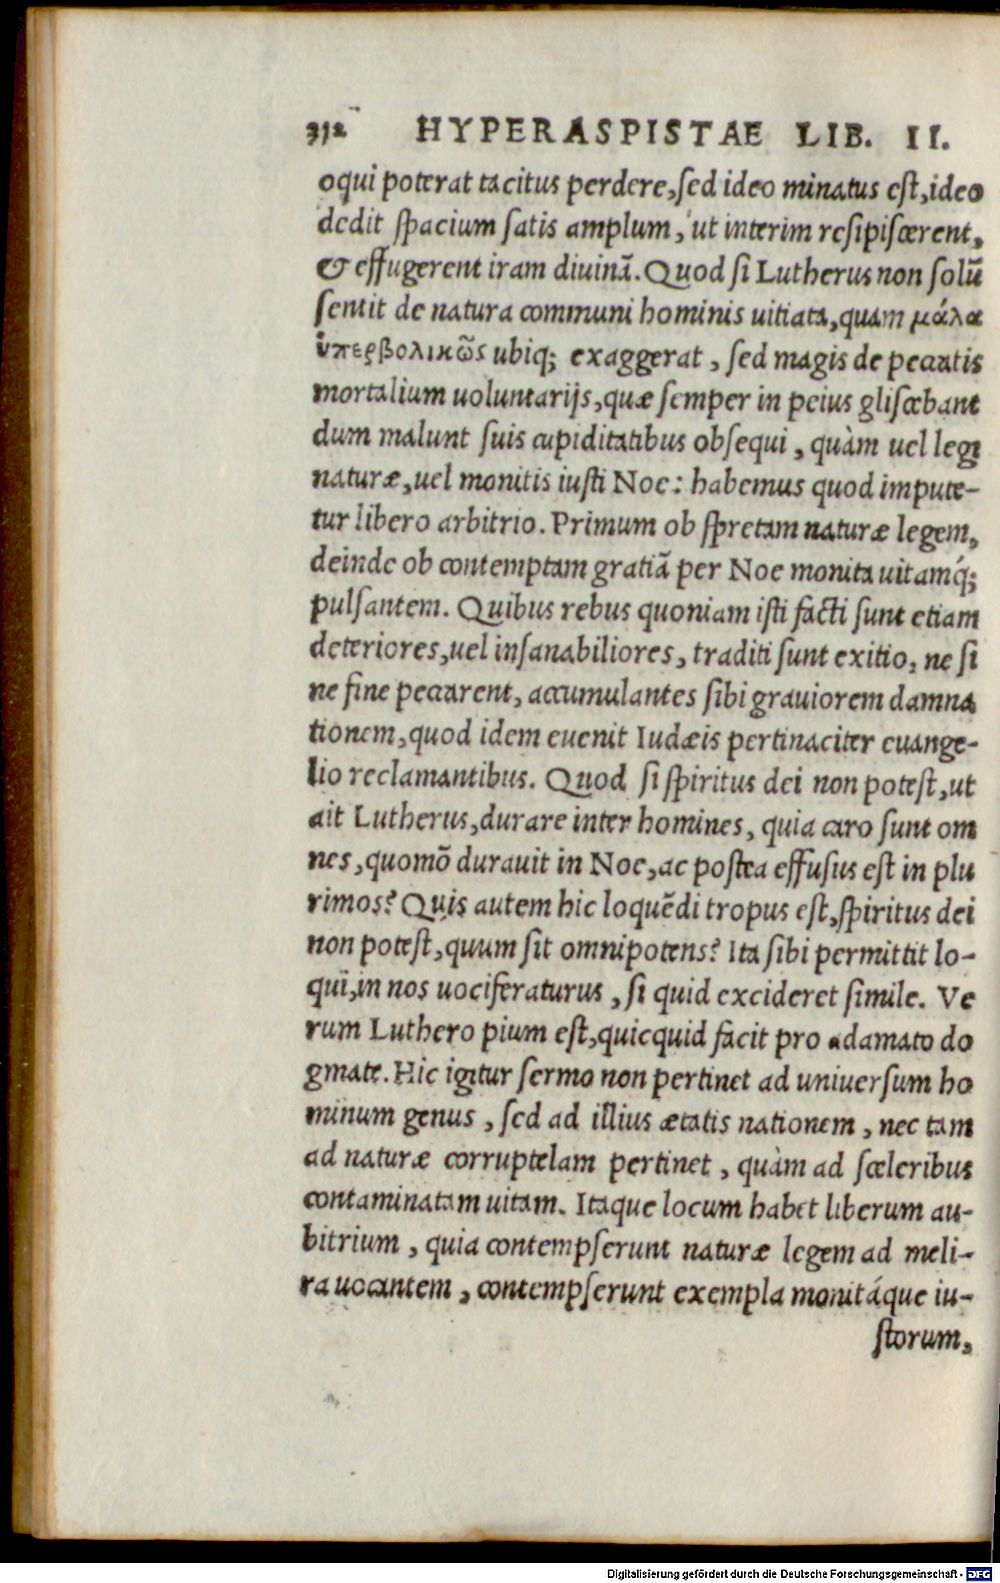 312 HYPERASPISTAE LIB. II.
oqui poterat tacitus perdere, sed ideo minatus est, ideo
dedit spacium satis amplum, ut interim resipiscerent,
& effugerent iram diuinã. Quod si Lutherus non solũ
sentit de natura communi hominis uitiata, quam μάλα
ὑπερβολικῶς ubiq; exaggerat, sed magis de peccatis
mortalium uoluntarijs, quæ semper in peius gliscebant
dum malunt suis cupiditatibus obsequi, quàm uel legi
naturæ, uel monitis iusti Noe: habemus quod impute-
tur libero arbitrio. Primum ob spretam naturæ legem,
deinde ob contemptam gratiã per Noe monita uitamq́;
pulsantem. Quibus rebus quoniam isti facti sunt etiam
deteriores, uel insanabiliores, traditi sunt exitio, ne si
ne fine peccarent, accumulantes sibi grauiorem damna
tionem, quod idem euenit Iudæis pertinaciter euange-
lio reclamantibus. Quod si spiritus dei non potest, ut
ait Lutherus, durare inter homines, quia caro sunt om
nes, quomõ durauit in Noe, ac postea effusus est in plu
rimos? Quis autem hic loquẽdi tropus est, spiritus dei
non potest, quum sit omnipotens? Ita sibi permittit lo-
qui, in nos uociferaturus, si quid excideret simile. Ve
rum Luthero pium est, quicquid facit pro adamato do
gmate. Hic igitur sermo non pertinet ad uniuersum ho
minum genus, sed ad illius ætatis nationem, nec tam
ad naturæ corruptelam pertinet, quàm ad sceleribus
contaminatam uitam. Itaque locum habet liberum au-
bitrium, quia contempserunt naturæ legem ad meli-
ra uocantem, contempserunt exempla monitáque iu-
storum,
Digitalisierung gefördert durch die Deutsche Forschungsgemeinschaft - DFG